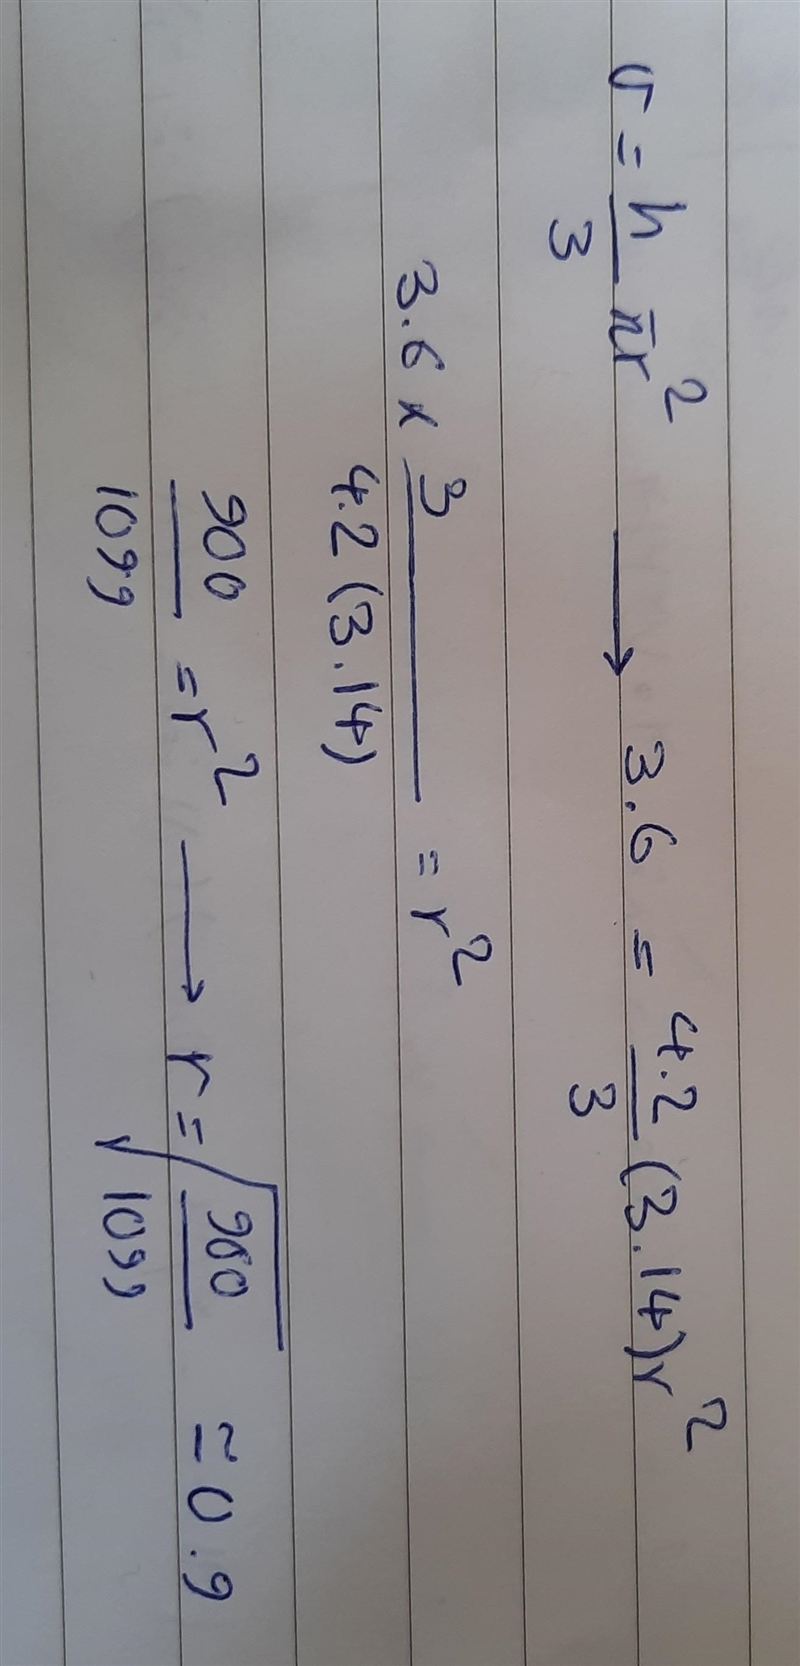 v = h/3 πr² → 3.6 = 4.2/3 (3.14)r²
3.6 x 3/4.2(3.14) = r²
900/1099 = r² → r = √900/1099 ≃ 0.9